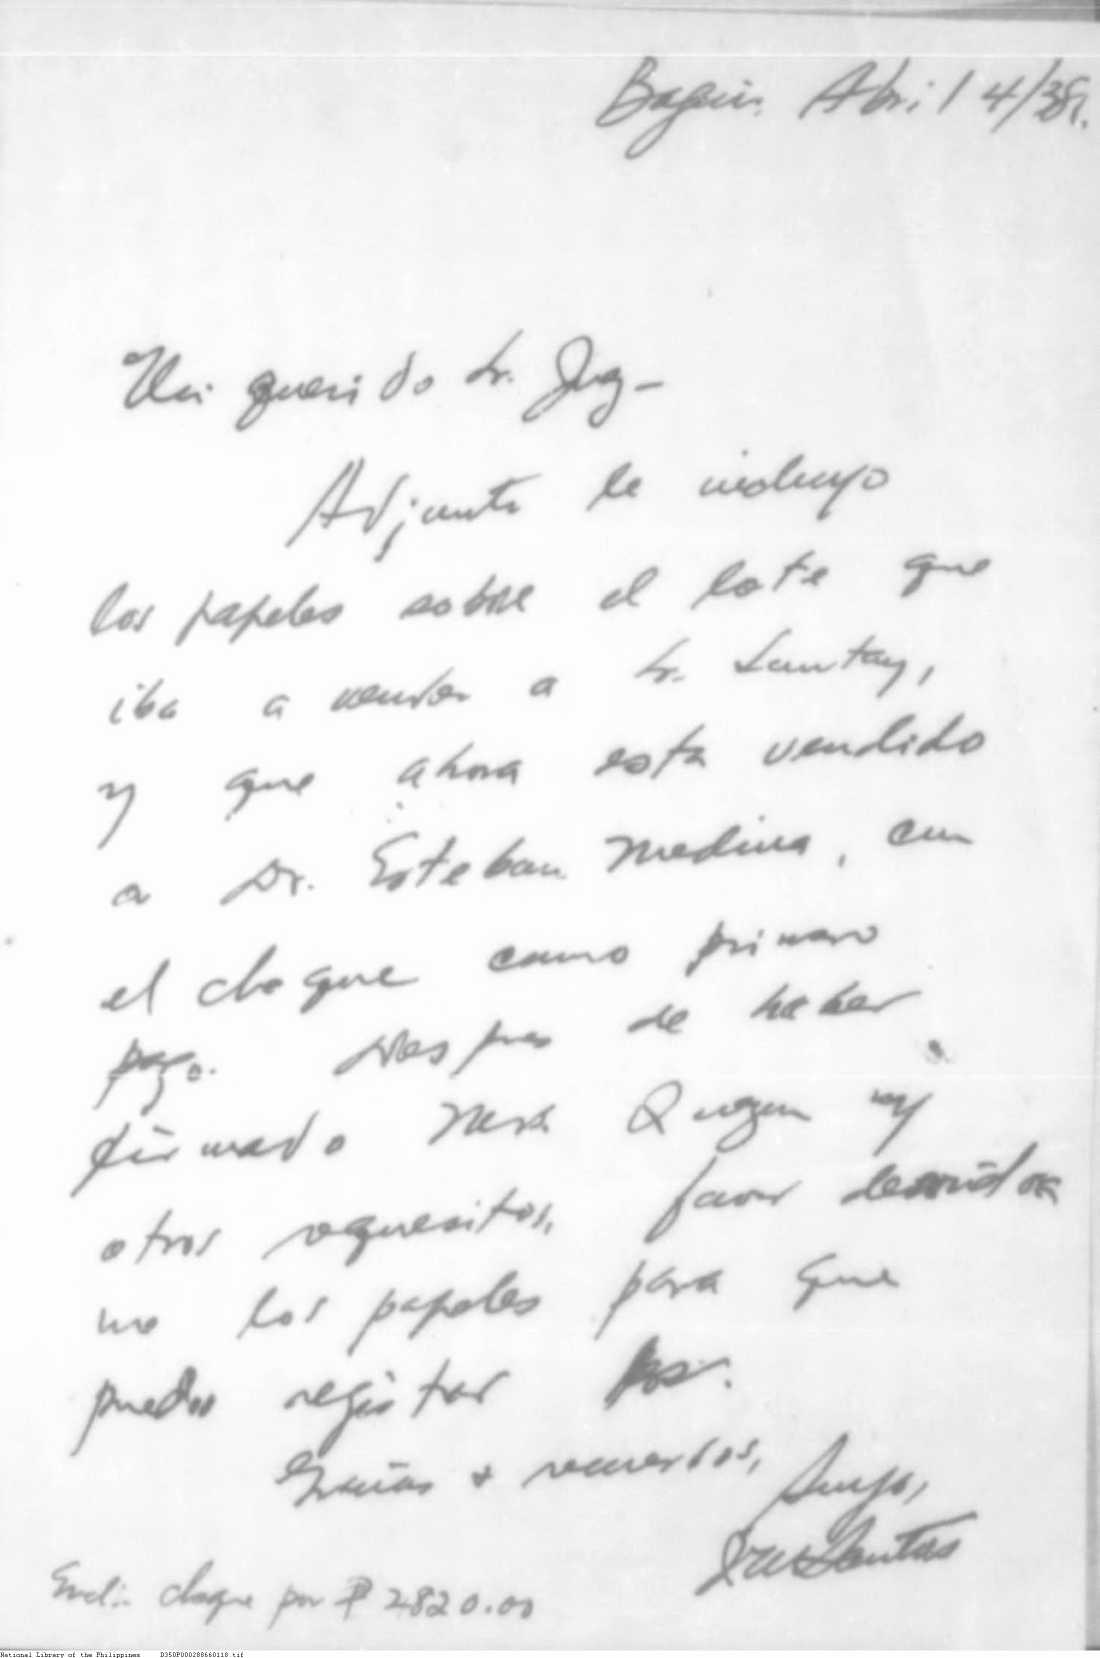 Baguio. Abril 4/38.
Mi querido Sr.
Adjunto le incluyo
los papeles sobre el lote que
iba a vender a Sr.
y que ahora esta vendido
a Dr. Esteban Medina, con
el cheque como primero
pago. Despues de haber
firmado Mrs. Quezon y
otros requisitos, favor
me los papeles para que
puedo registrar los.
Gracias & recuerdos,
Suyo,
Santos
Encl: cheque por ₱ 2820.00
National Library of the Philippines D350P000288660118.tif